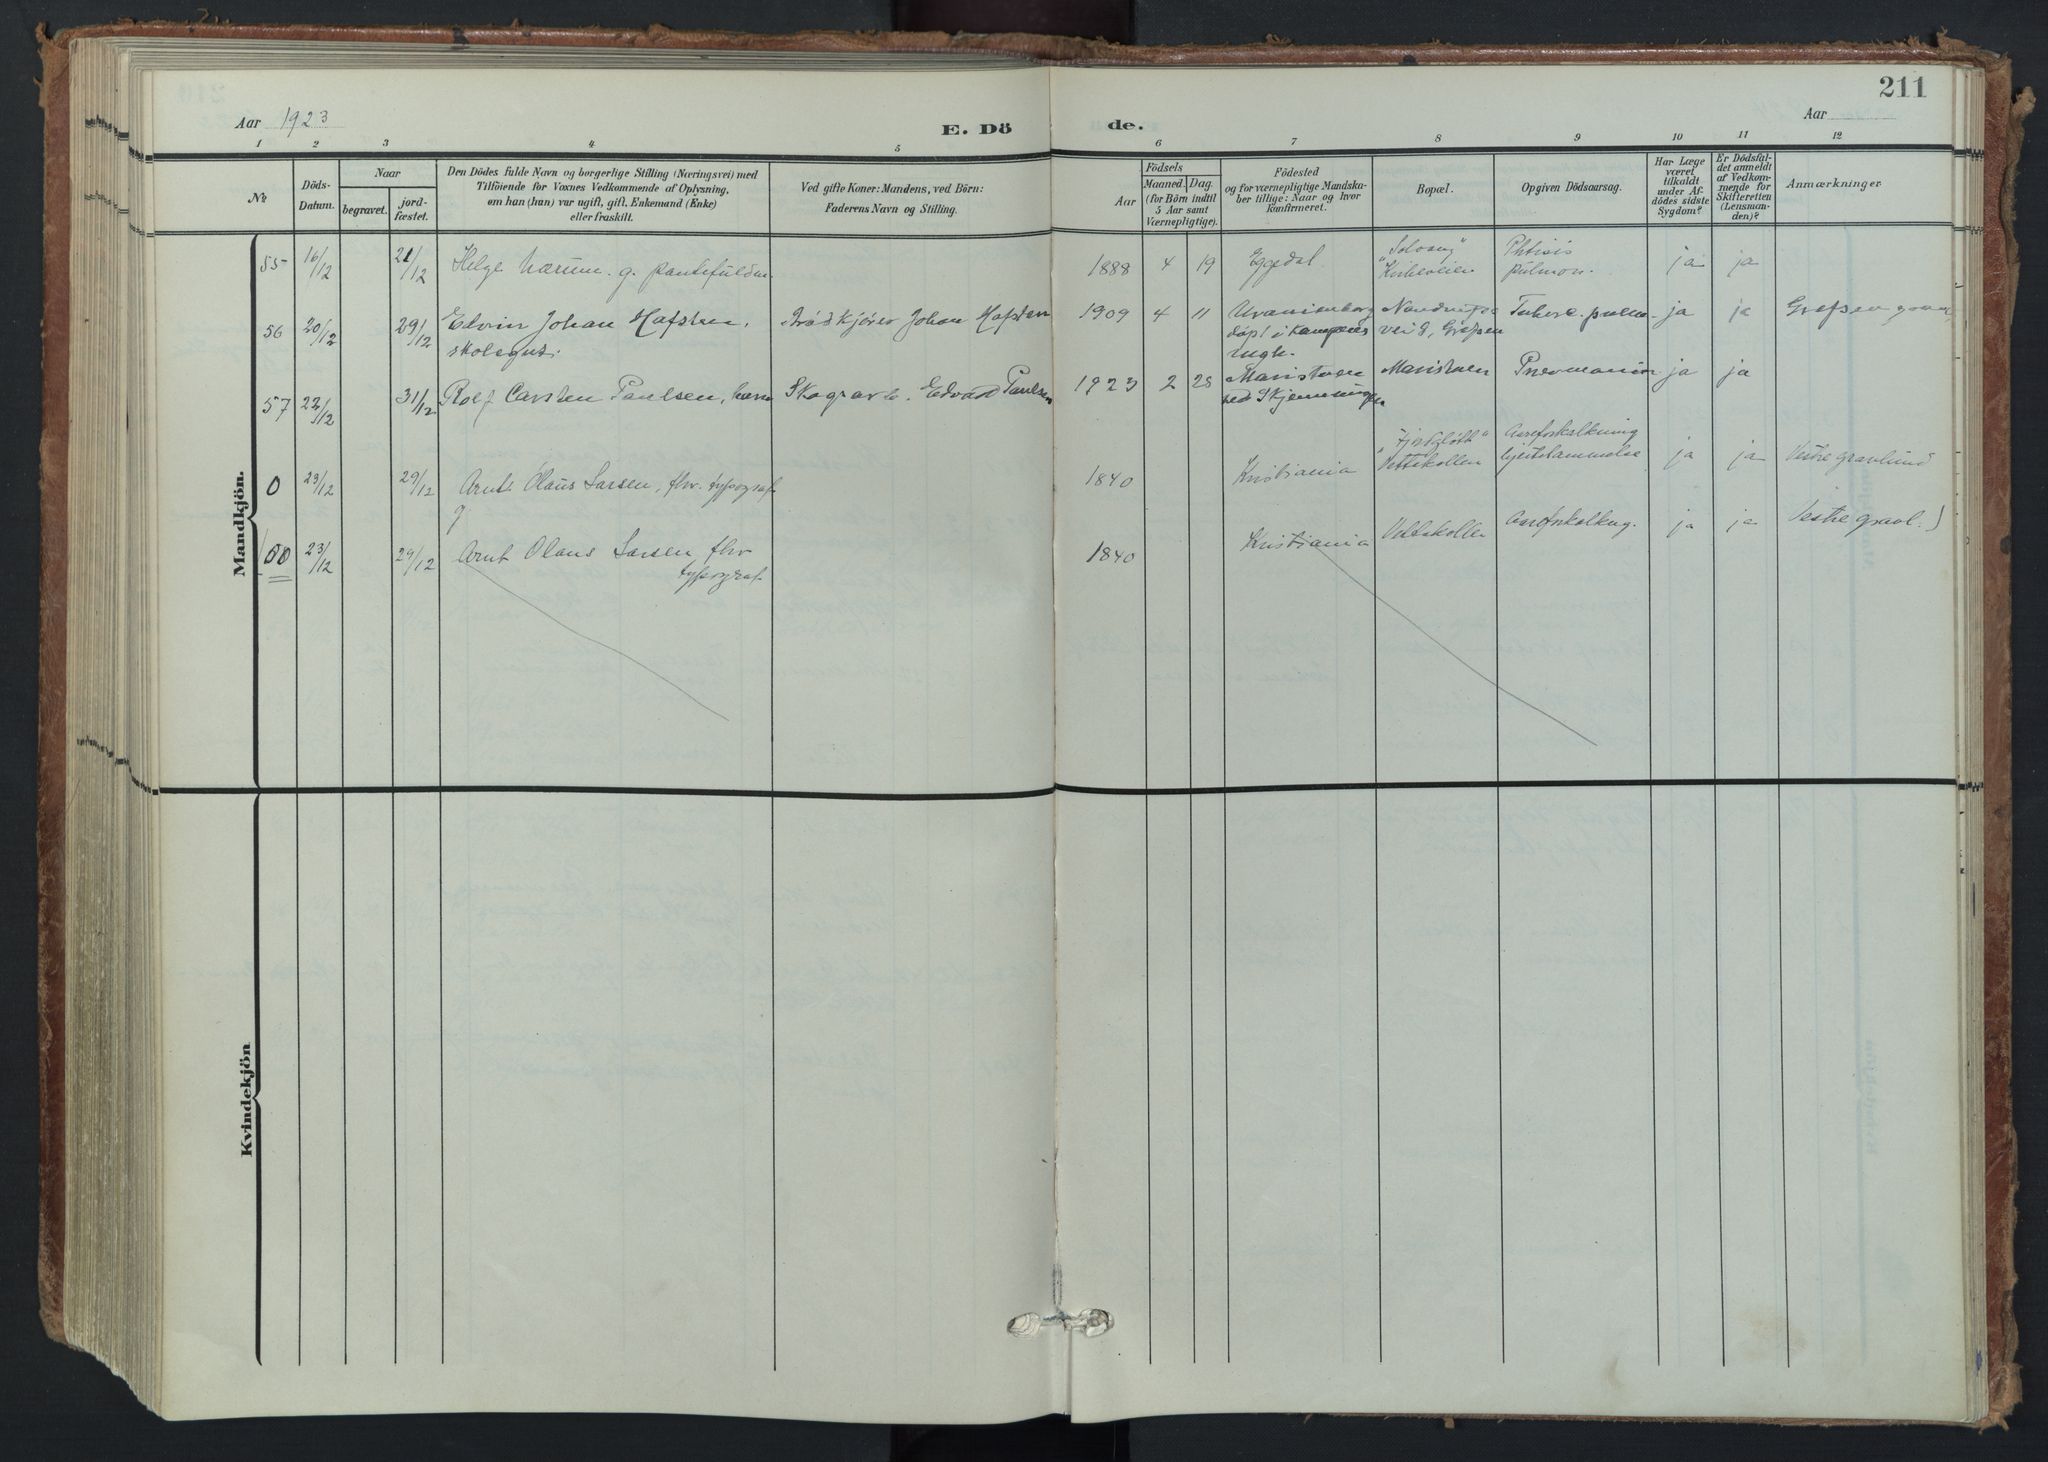 211
Aar 1923
E. Dö
de.
Aar
1 2 3 4 5 6 7 8 9 10 11 12
No.
Döds-
Datum.
Naar
begravet.
jord-
fæstet.
Den Dödes fulde Navn og borgerlige Stilling (Næringsvei) med
Tilföiende for Voxnes Vedkommende af Oplysning,
om han (hun) var ugift, gift, Enkemand (Enke)
eller fraskilt.
Ved gifte Koner: Mandens, ved Börn:
Faderens Navn og Stilling.
Födsels
Aar
Maaned.
Dag.
(for Börn indtil
5 Aar samt
Værnepligtige).
Födested
og for værnepligtige Mandska-
ber tillige: Naar og hvor
konfirmeret.
Bopæl.
Opgiven Dödsaarsag.
Har Læge
været
tilkaldt
under Af-
dödes sidste
Sygdom?
Er Dödsfal-
det anmeldt
af Vedkom-
mende for
Skifteretten
(Lensman-
den)?
Anmærkninger
Mandkjön.
55 16/12 21/12 Helge Nærum. g. 1888 4 19 Eggedal "Solvang" Phtisis ja ja
Kirkeveien pulmon.
56 20/12 29/12 Edvin Johan Hafsten, Brödkjörer Johan Hafsten 1909 4 11 Uranienborg ja ja Grefsen
skolegut. döpt i Kampens vei 8, Grefsen
57 22/12 31/12 Rolf Carsten Paulsen, barn Skogsarb. Edvard Paulsen 1923 2 28 Maristuen Maristuen ja ja
ved Skjenningen
0 23/12 29/12 Arnt Olaus Larsen, fhv. typograf 1840 Kristiania Aareforkalkning ja ja Vestre gravlund
g Vettakollen hjertelammelse
(00 23/12 29/12 Arnt Olaus Larsen fhv 1840 Kristiania Vettakollen Aareforkalkng. ja ja Vestre gravl.)
typograf
Kvindekjön